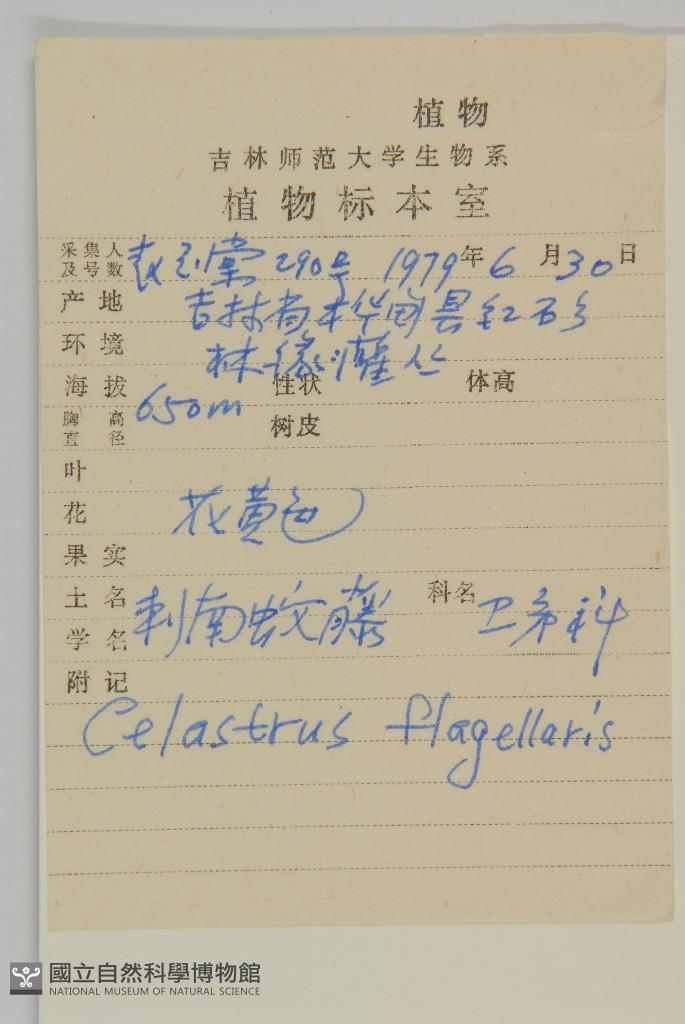 植物
吉林师范大学生物系
植物标本室
采集人及号数 290号 1979年6月30日
产地 吉林省桦甸县红石乡
环境 林缘灌丛
海拔 650m 性状 体高
胸高直径 树皮
叶
花 花黄色
果实
土名 刺南蛇藤 科名 卫矛科
学名
附记
Celastrus flagellaris
國立自然科學博物館
NATIONAL MUSEUM OF NATURAL SCIENCE